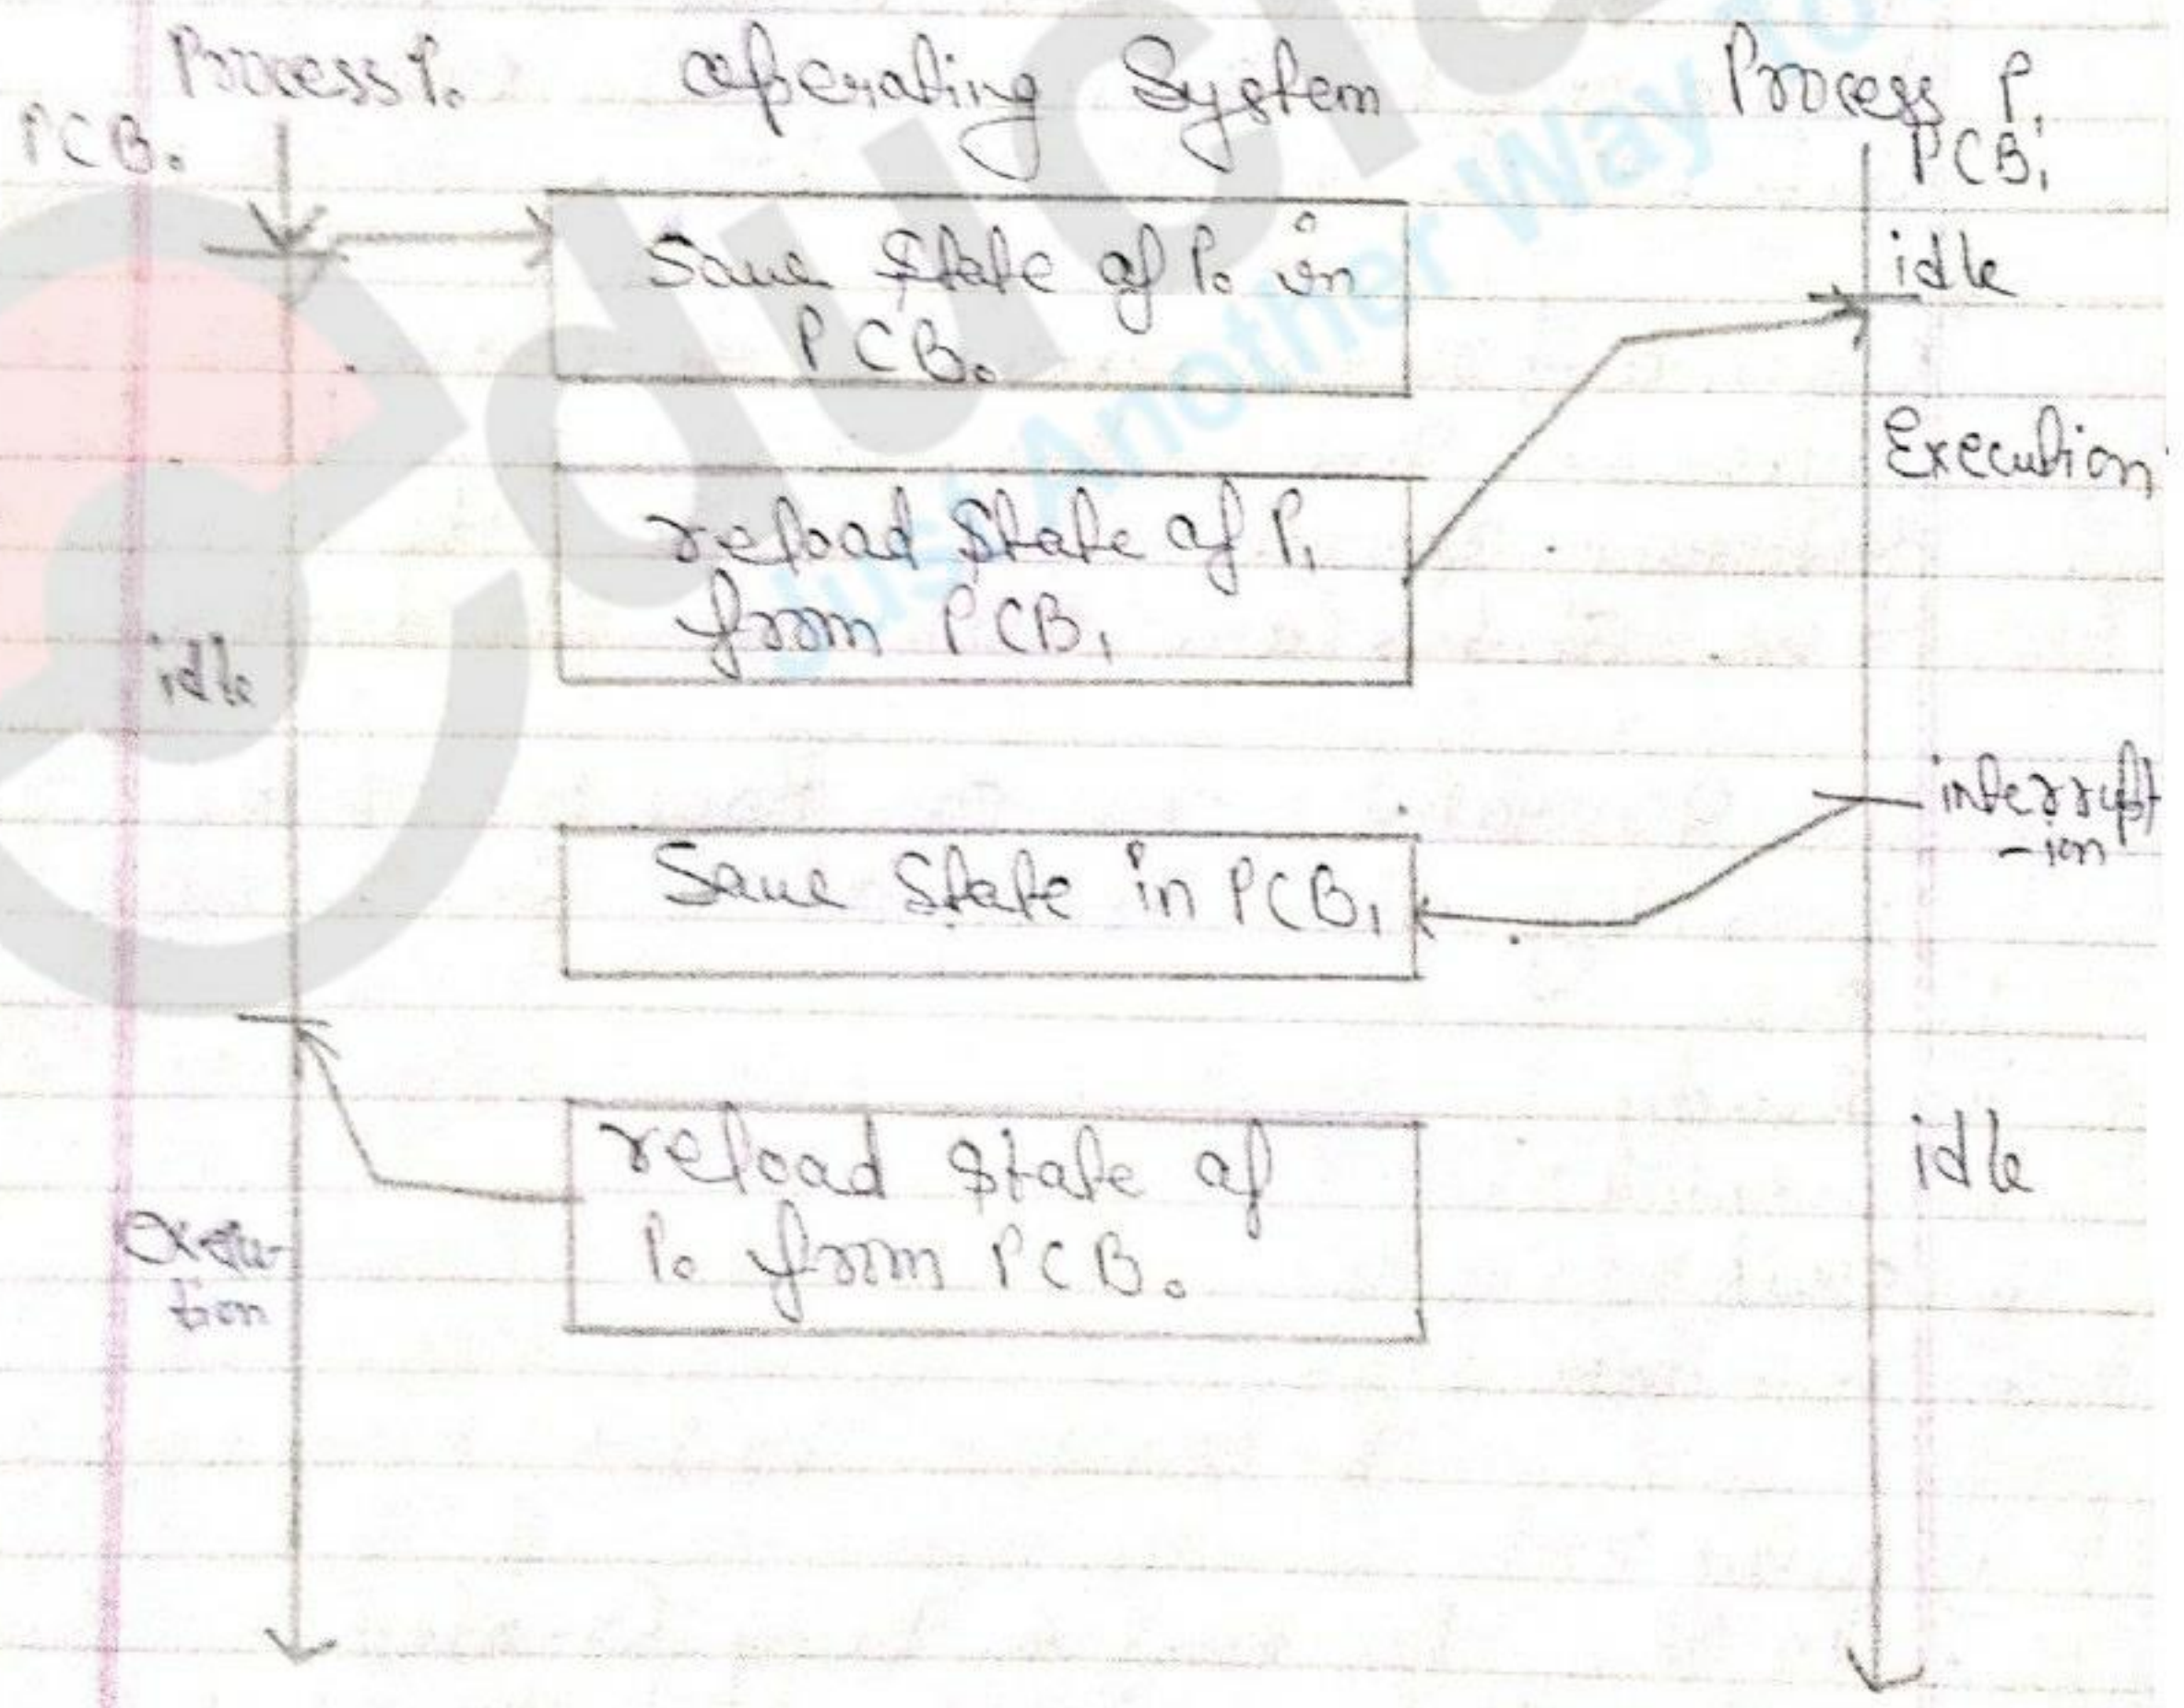 Process P₀ Operating System Process P₁
PCB₀
PCB₁
Save State of P₀ in
PCB₀
idle
Execution
reload State of P₁
from PCB₁
idle
interrupt
-ion
Save State in PCB₁
reload State of
P₀ from PCB₀
idle
Execu-
tion
Just Another Way to